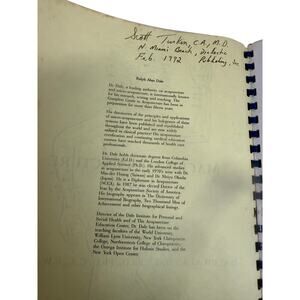 Scott Turken, C.A., M.D.
N. Miami Beach, Dialectic
Feb. 1992 Publishing, Inc
Ralph Alan Dale
Dr. Dale, a leading authority on acupuncture
and micro-acupuncture, is internationally known
for his research, writing and teaching. The
Complete Guide to Acupuncture has been in
preparation for more than fifteen years.
The theories of the principles and applications
of micro-acupuncture and the hologram of these
systems have been published and established
throughout the world and are now widely
utilized in clinical practice. His acupuncture
certification and continuing education
courses have reached thousands of health care
professionals.
Dr. Dale holds doctorate degrees from Columbia
University (Ed.D.) and the London College of
Applied Science (Ph.D.). He studied advanced
acupuncture in the early 1970's with Dr.
(Japan). He is a Diplomate in Acupuncture
(NCCA). In 1987 he was elected Doctor of the
Year by the Acupuncture Society of America.
His biography appears in The Dictionary of
International Biography, Two Thousand Men of
Achievement and other biographical listings.
Director of the Dale Institute for Personal and
Social Health and of The Acupuncture
Education Center, Dr. Dale has been on the
teaching faculties of the World University,
William Lyon University, New York Chiropractic
College, Northwestern College of Chiropractic,
the Georgia Institute for Holistic Studies, and the
New York Open Center.